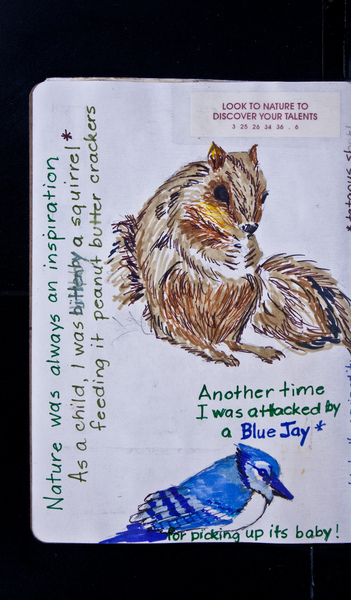 LOOK TO NATURE TO
DISCOVER YOUR TALENTS
3 25 26 34 36 . 6
Nature was always an inspiration
As a child, I was bitten by a squirrel *
feeding it peanut butter crackers
Another time
I was attacked by
a Blue Jay *
for picking up its baby!